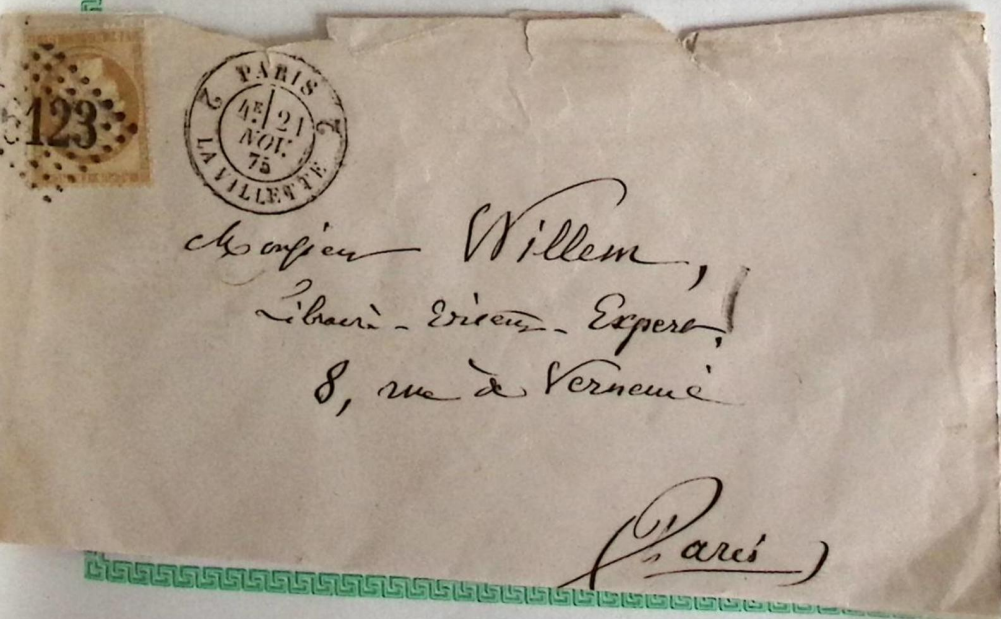 123
PARIS
2 2
4E 21
NOV.
75
LA VILLETTE
Monsieur Willem,
Libraire - Editeur - Expert,
8, rue de Verneuil
Paris